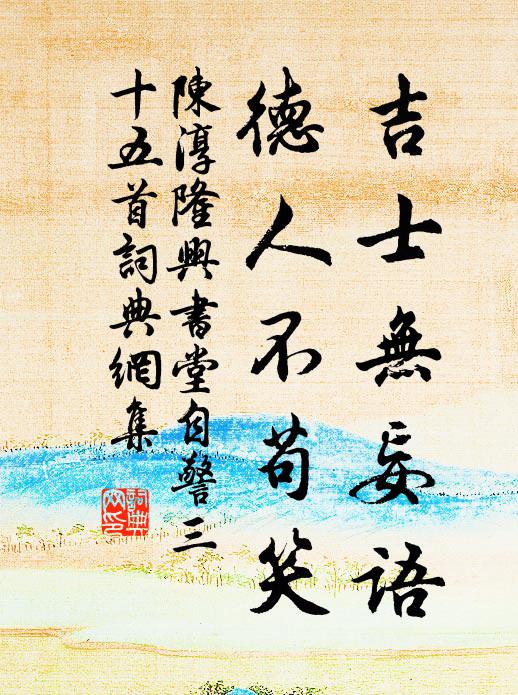 吉士無妄語
德人不苟笑
陳淳隆興書堂自警三
十五首詞典網集
詞典網印